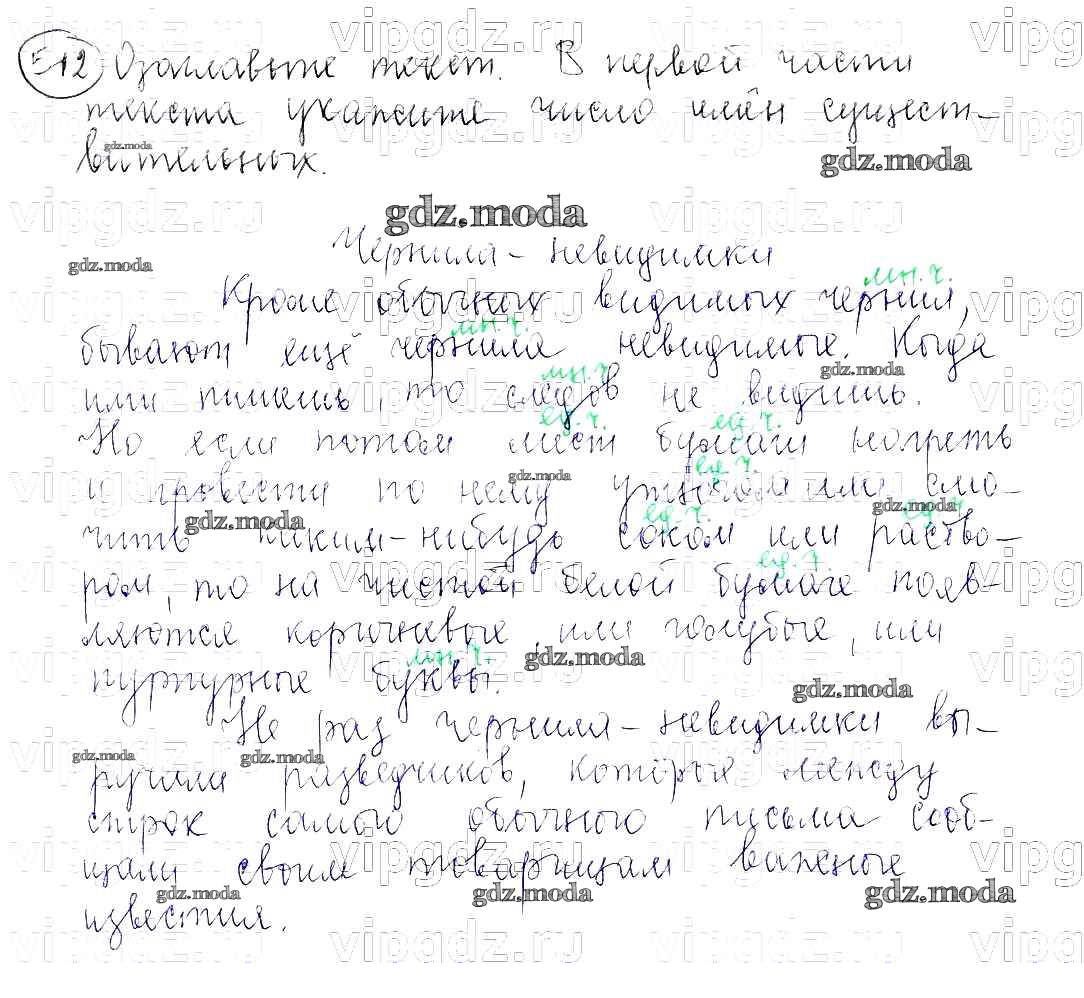 512 Озаглавьте текст. В первой части
текста укажите число имён сущест-
вительных.
Чернила-невидимки
мн. ч.
Кроме обычных видимых чернил,
мн. ч.
бывают ещё чернила невидимые. Когда
мн. ч.
ими пишешь, то следов не видишь.
ед. ч. ед. ч.
Но если потом лист бумаги нагреть
ед. ч.
и провести по нему утюгом или смо-
ед. ч. ед. ч.
чить каким-нибудь соком или раство-
ед. ч.
ром, то на чистой белой бумаге появ-
ляются коричневые, или голубые, или
мн. ч.
пурпурные буквы.
Не раз чернила-невидимки вы-
ручали разведчиков, которые между
строк самого обычного письма сооб-
щали своим товарищам важные
известия.
gdz.moda
vipgdz.ru